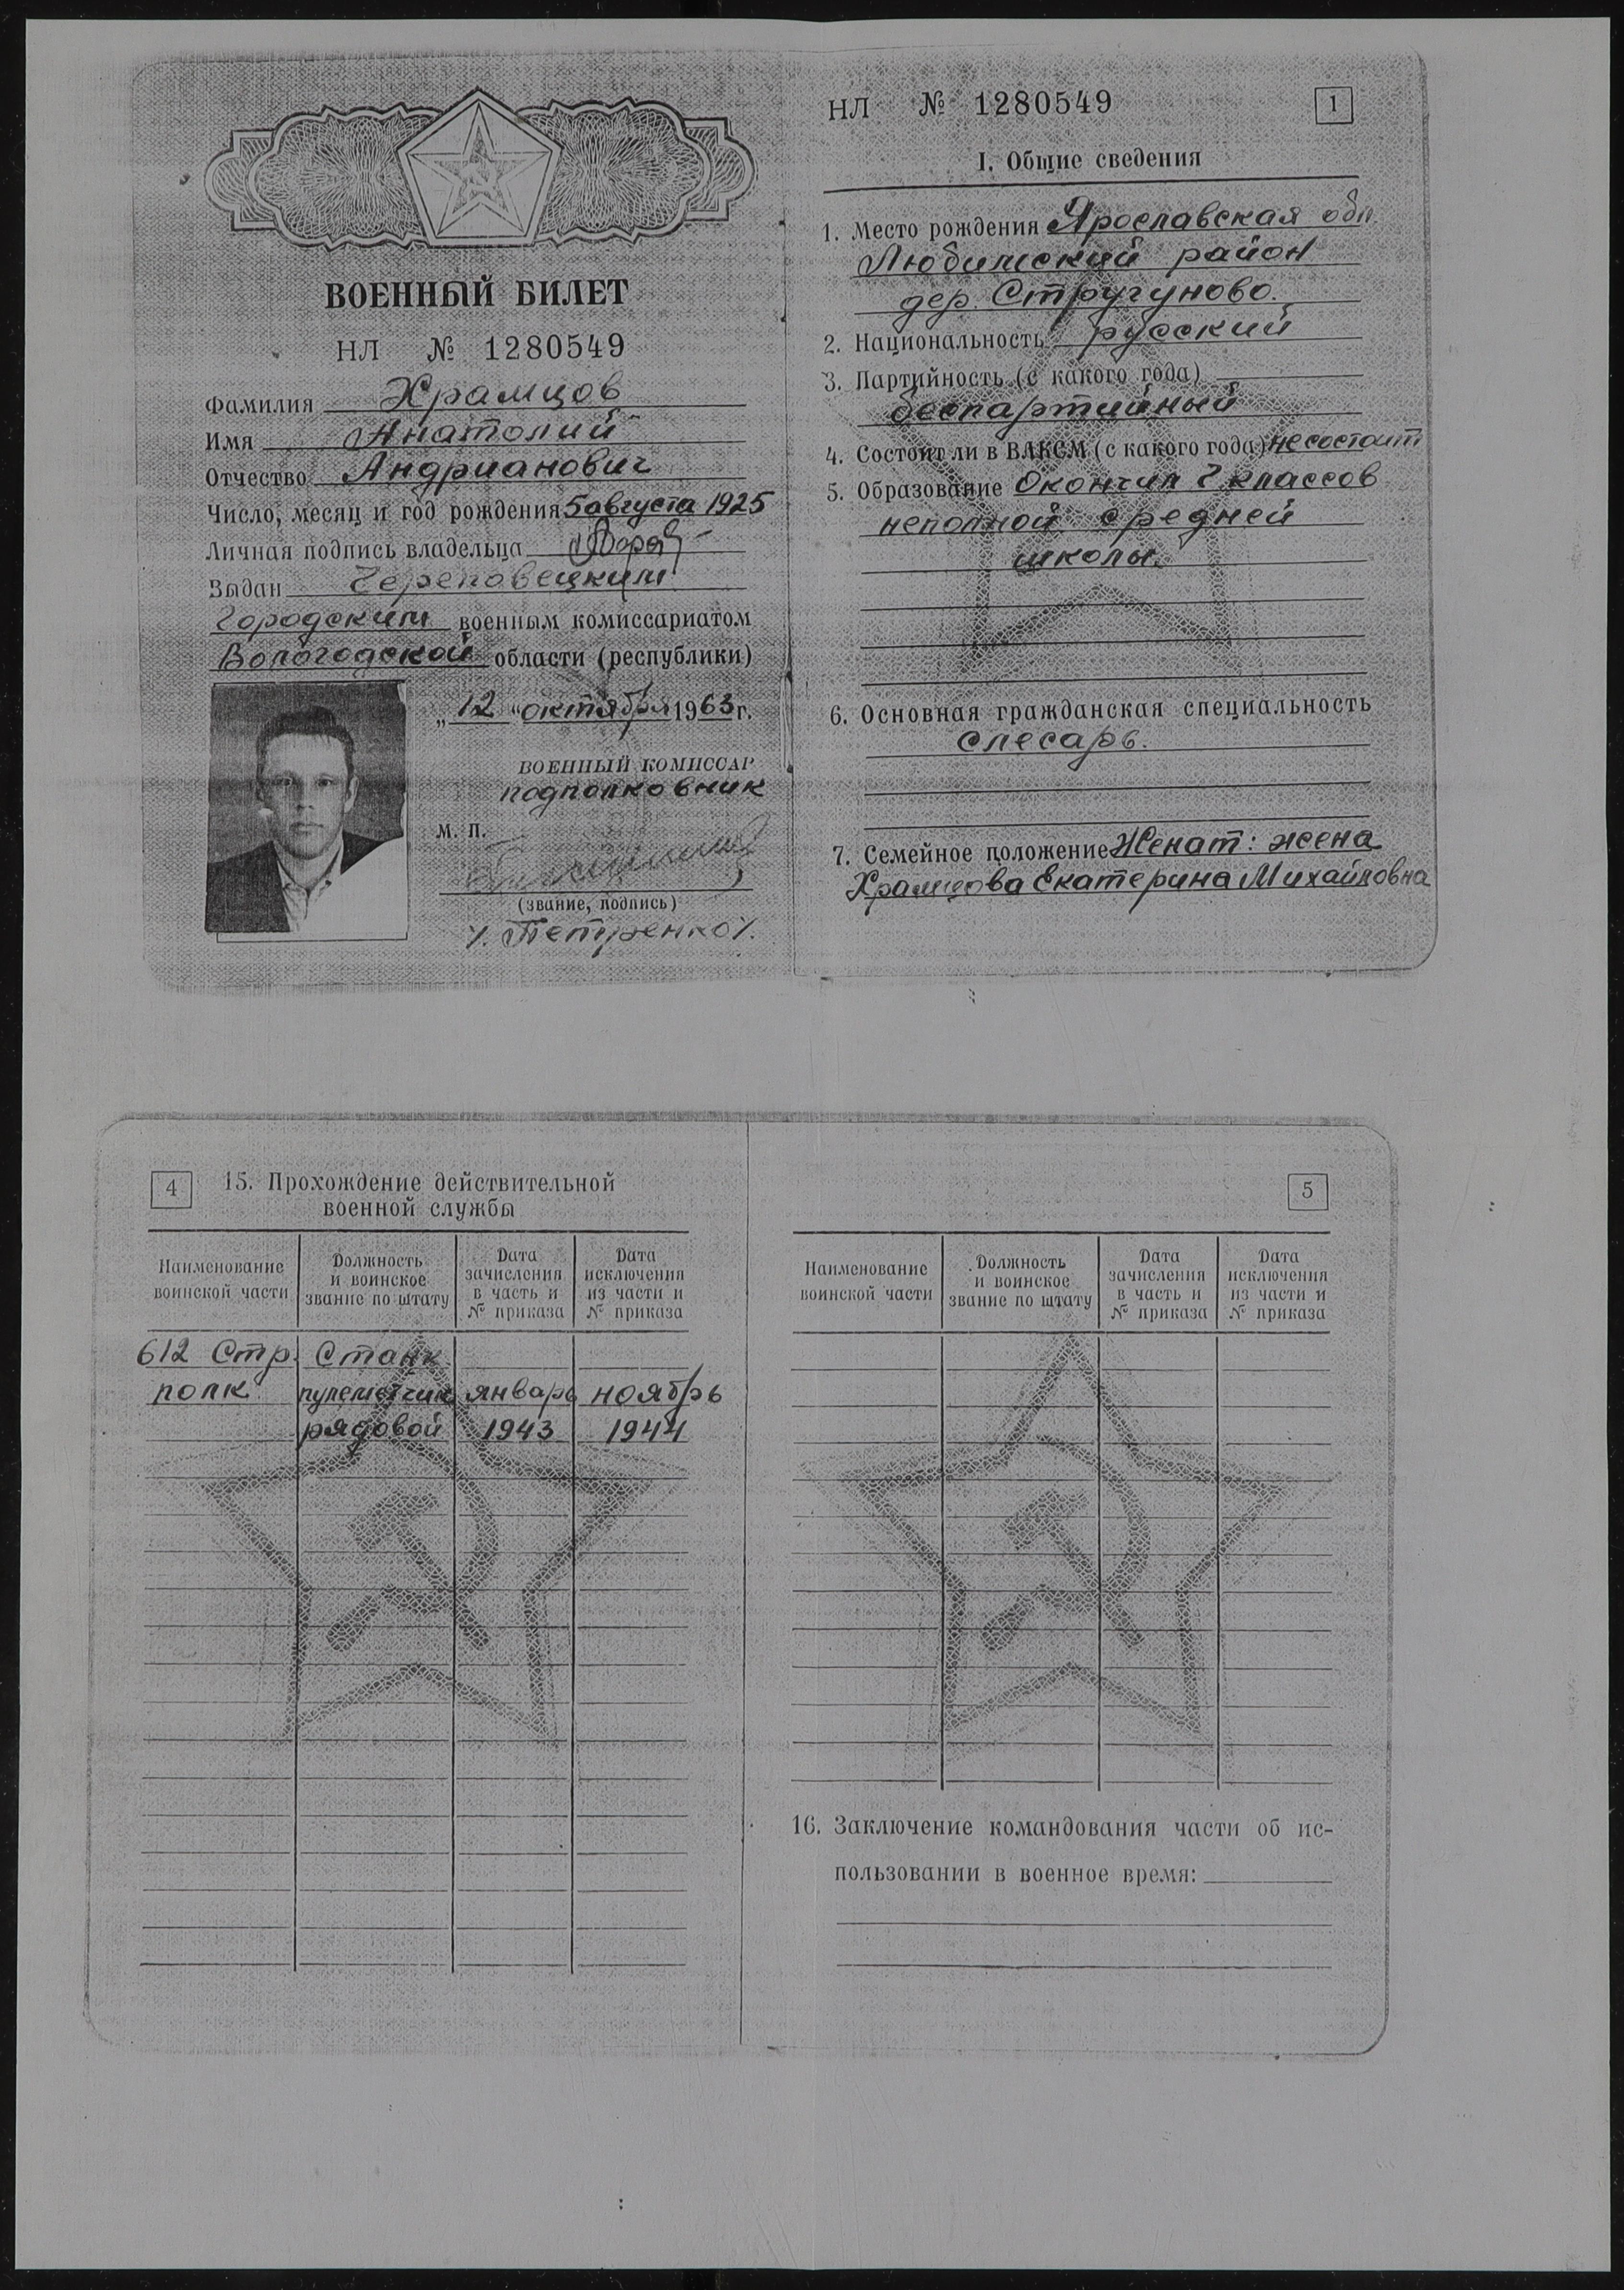 ВОЕННЫЙ БИЛЕТ
НЛ № 1280549
Фамилия Храмцов
Имя Анатолий
Отчество Андрианович
Число, месяц и год рождения 5 августа 1925
Личная подпись владельца
Выдан Череповецким
Городским военным комиссариатом
Вологодской области (республики)
„12“ октября 1963 г.
ВОЕННЫЙ КОМИССАР
подполковник
М. П.
(звание, подпись)
/. Петренко /.
НЛ № 1280549
1
I. Общие сведения
1. Место рождения Ярославская обл.
Любимский район
дер. Стругуново.
2. Национальность русский
3. Партийность (с какого года)
беспартийный
4. Состоит ли в ВЛКСМ (с какого года) не состоит
5. Образование Окончил 7 классов
неполной средней
школы.
6. Основная гражданская специальность
слесарь.
7. Семейное положение Женат: жена
Храмцова Екатерина Михайловна
4
15. Прохождение действительной
военной службы
Наименование воинской части
Должность и воинское звание по штату
Дата зачисления в часть и № приказа
Дата исключения из части и № приказа
612 Стр. Станк.
полк пулеметчик январь ноябрь
рядовой 1943 1944
5
Наименование воинской части
Должность и воинское звание по штату
Дата зачисления в часть и № приказа
Дата исключения из части и № приказа
16. Заключение командования части об ис-
пользовании в военное время: